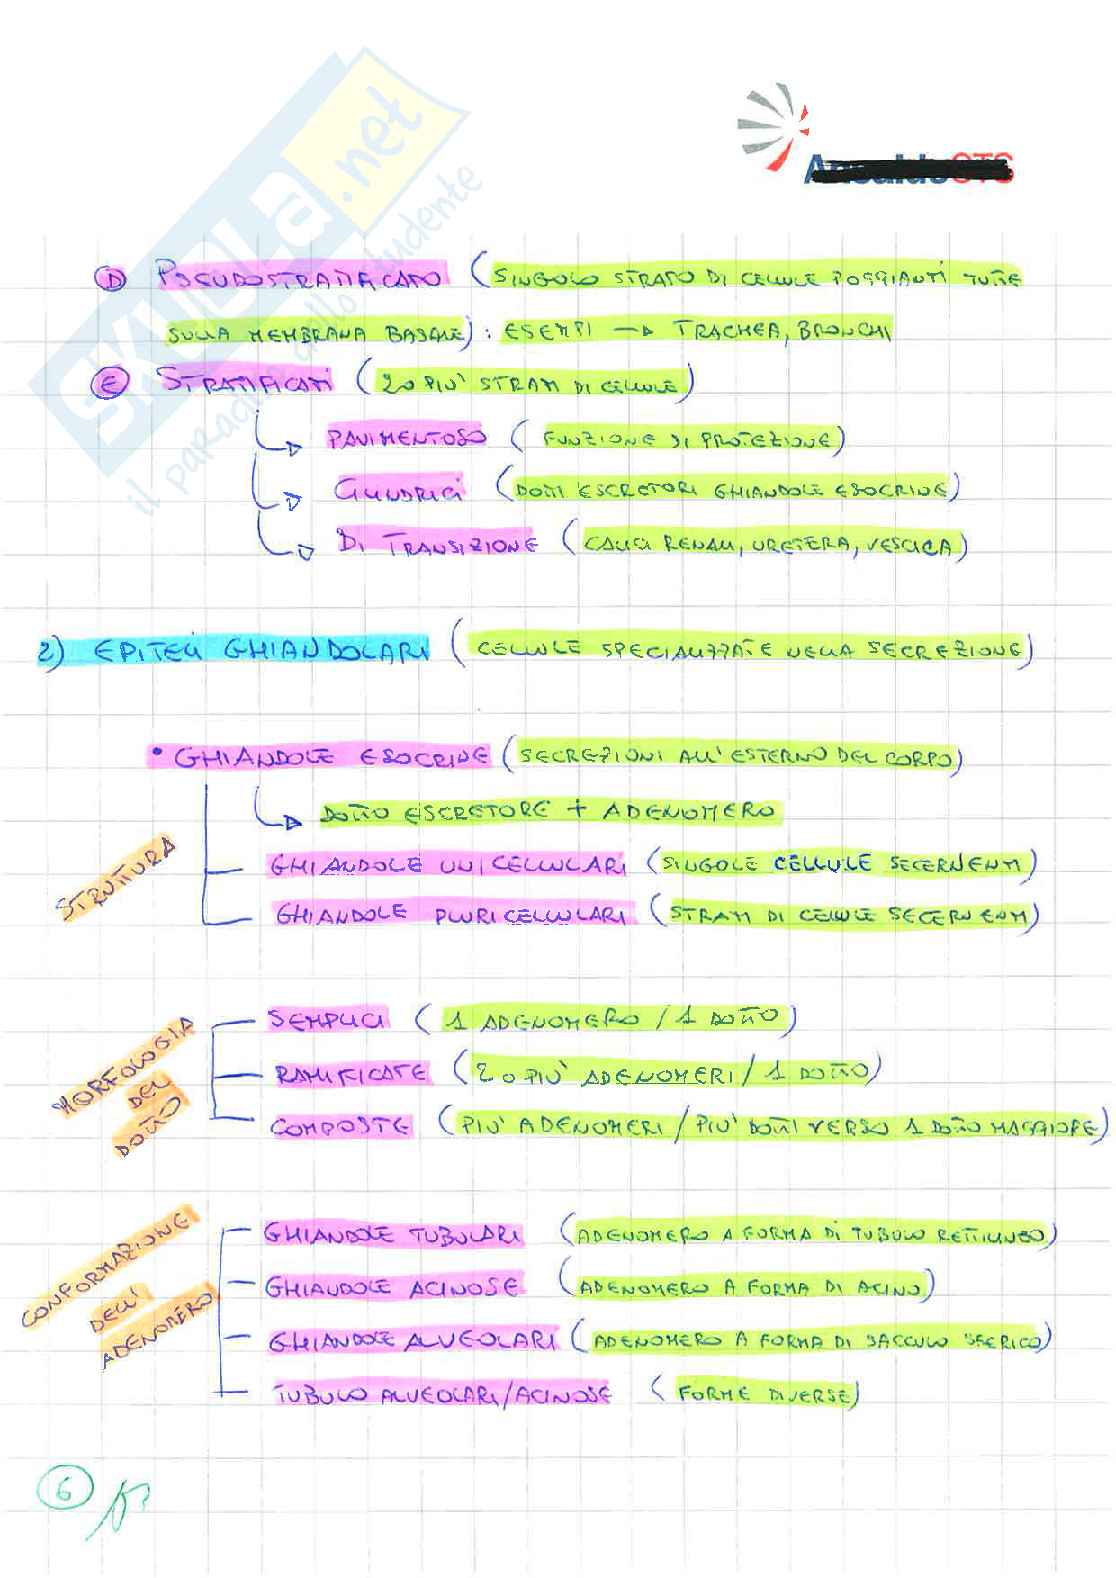 SKUOLA.net
il paradiso dello studente
AnsaldoSTS
D PSEUDOSTRATIFICATO (SINGOLO STRATO DI CELLULE POGGIANTI TUTTE
SULLA MEMBRANA BASALE) : ESEMPI → TRACHEA, BRONCHI
E STRATIFICATI (2 O PIÙ STRATI DI CELLULE)
PAVIMENTOSO (FUNZIONE DI PROTEZIONE)
CILINDRICI (DOTTI ESCRETORI GHIANDOLE ESOCRINE)
DI TRANSIZIONE (CALICI RENALI, URETERA, VESCICA)
2) EPITELI GHIANDOLARI (CELLULE SPECIALIZZATE NELLA SECREZIONE)
• GHIANDOLE ESOCRINE (SECREZIONI ALL'ESTERNO DEL CORPO)
DOTTO ESCRETORE + ADENOMERO
STRUTTURA
GHIANDOLE UNICELLULARI (SINGOLE CELLULE SECERNENTI)
GHIANDOLE PLURICELLULARI (STRATI DI CELLULE SECERNENTI)
MORFOLOGIA
DEL
DOTTO
SEMPLICI (1 ADENOMERO / 1 DOTTO)
RAMIFICATE (2 O PIÙ ADENOMERI / 1 DOTTO)
COMPOSTE (PIÙ ADENOMERI / PIÙ DOTTI VERSO 1 DOTTO MAGGIORE)
CONFORMAZIONE
DELL'
ADENOMERO
GHIANDOLE TUBULARI (ADENOMERO A FORMA DI TUBULO RETTILINEO)
GHIANDOLE ACINOSE (ADENOMERO A FORMA DI ACINO)
GHIANDOLE ALVEOLARI (ADENOMERO A FORMA DI SACCULO SFERICO)
TUBULO ALVEOLARI/ACINOSE (FORME DIVERSE)
6